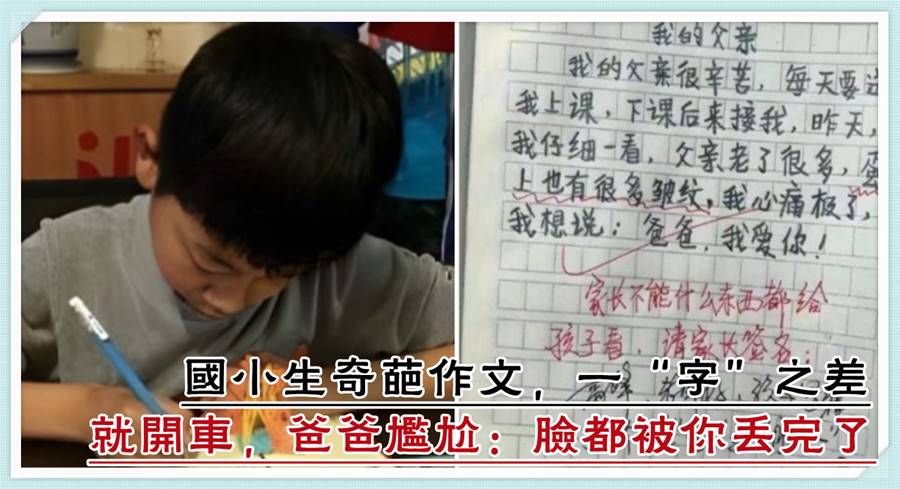 我的父亲
我的父亲很辛苦，每天要送
我上课，下课后来接我，昨天，
我仔细一看，父亲老了很多，蛋
上也有很多皱纹，我心痛极了，
我想说：爸爸，我爱你！
家长不能什么东西都给
孩子看，请家长签名：
國小生奇葩作文，一“字”之差
就開車，爸爸尷尬：臉都被你丟完了